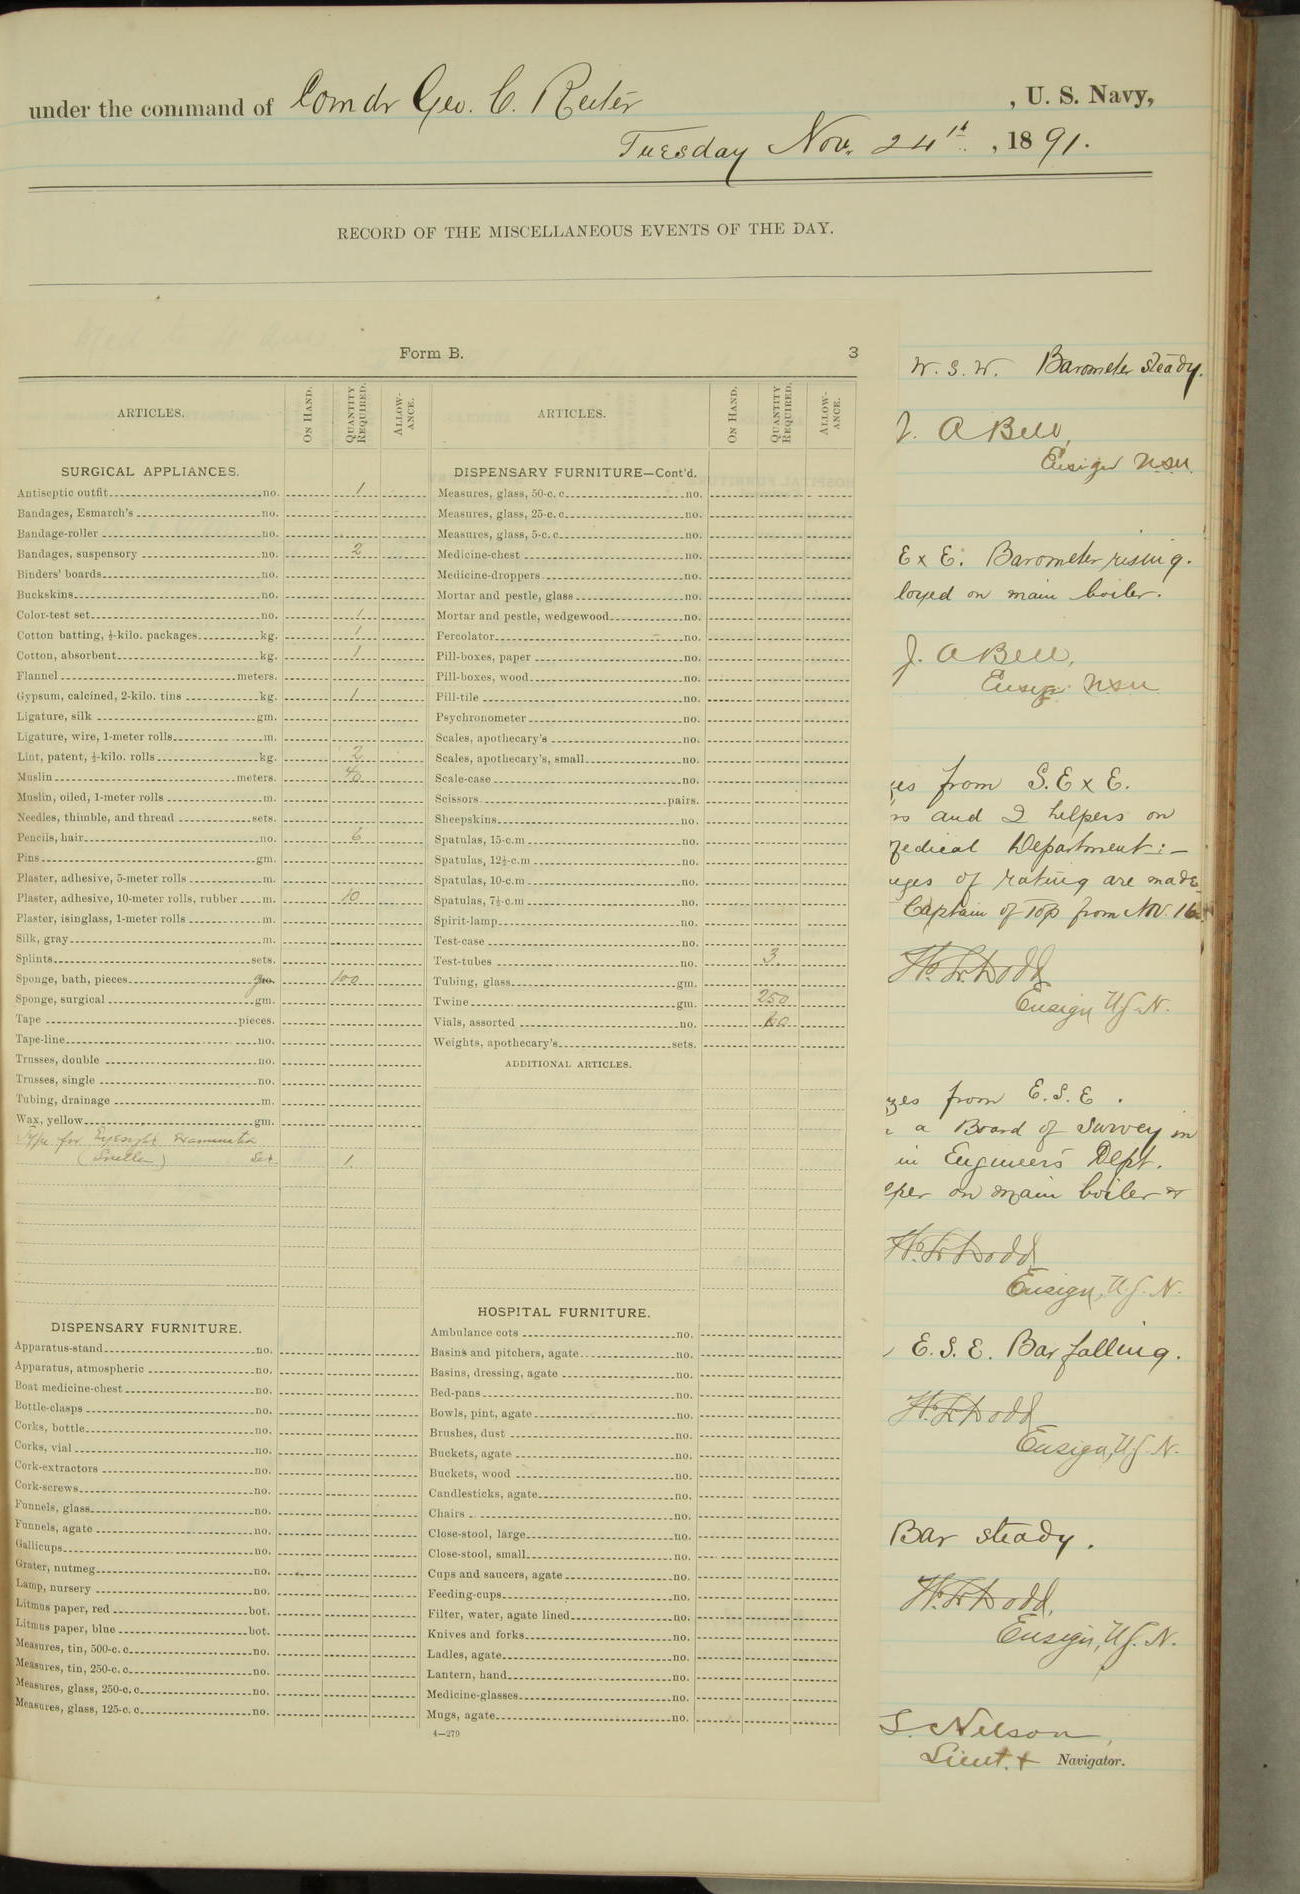 under the command of Comdr Geo. C. Reiter , U. S. Navy,
Tuesday Nov. 24th , 1891.
RECORD OF THE MISCELLANEOUS EVENTS OF THE DAY.
Form B.
3
ARTICLES.
ON HAND.
QUANTITY REQUIRED.
ALLOWANCE.
SURGICAL APPLIANCES.
Antiseptic outfit no. 1
Bandages, Esmarch's no.
Bandage-roller no.
Bandages, suspensory no. 2
Binders' boards no.
Buckskins no.
Color-test set no. 1
Cotton batting, ½-kilo. packages kg. 1
Cotton, absorbent kg. 1
Flannel meters.
Gypsum, calcined, 2-kilo. tins kg. 1
Ligature, silk gm.
Ligature, wire, 1-meter rolls m.
Lint, patent, ½-kilo. rolls kg. 2
Muslin meters. 40
Muslin, oiled, 1-meter rolls m.
Needles, thimble, and thread sets.
Pencils, hair no. 6
Pins gm.
Plaster, adhesive, 5-meter rolls m.
Plaster, adhesive, 10-meter rolls, rubber m. 10
Plaster, isinglass, 1-meter rolls m.
Silk, gray m.
Splints sets.
Sponge, bath, pieces 100
Sponge, surgical gm.
Tape pieces.
Tape-line no.
Trusses, double no.
Trusses, single no.
Tubing, drainage m.
Wax, yellow gm.
Type for Eyesight Examination
(Snellen) Set 1
DISPENSARY FURNITURE.
Apparatus-stand no.
Apparatus, atmospheric no.
Boat medicine-chest no.
Bottle-clasps no.
Corks, bottle no.
Corks, vial no.
Cork-extractors no.
Cork-screws no.
Funnels, glass no.
Funnels, agate no.
Gallicups no.
Grater, nutmeg no.
Lamp, nursery no.
Litmus paper, red bot.
Litmus paper, blue bot.
Measures, tin, 500-c. c no.
Measures, tin, 250-c. c no.
Measures, glass, 250-c. c no.
Measures, glass, 125-c. c no.
ARTICLES.
ON HAND.
QUANTITY REQUIRED.
ALLOWANCE.
DISPENSARY FURNITURE—Cont'd.
Measures, glass, 50-c. c no.
Measures, glass, 25-c. c no.
Measures, glass, 5-c. c no.
Medicine-chest no.
Medicine-droppers no.
Mortar and pestle, glass no.
Mortar and pestle, wedgewood no.
Percolator no.
Pill-boxes, paper no.
Pill-boxes, wood no.
Pill-tile no.
Psychronometer no.
Scales, apothecary's no.
Scales, apothecary's, small no.
Scale-case no.
Scissors pairs.
Sheepskins no.
Spatulas, 15-c.m no.
Spatulas, 12½-c.m no.
Spatulas, 10-c.m no.
Spatulas, 7½-c.m no.
Spirit-lamp no.
Test-case no.
Test-tubes no. 3
Tubing, glass gm.
Twine gm. 250
Vials, assorted no.
Weights, apothecary's sets.
ADDITIONAL ARTICLES.
HOSPITAL FURNITURE.
Ambulance cots no.
Basins and pitchers, agate no.
Basins, dressing, agate no.
Bed-pans no.
Bowls, pint, agate no.
Brushes, dust no.
Buckets, agate no.
Buckets, wood no.
Candlesticks, agate no.
Chairs no.
Close-stool, large no.
Close-stool, small no.
Cups and saucers, agate no.
Feeding-cups no.
Filter, water, agate lined no.
Knives and forks no.
Ladles, agate no.
Lantern, hand no.
Medicine-glasses no.
Mugs, agate no.
4—279
W. S. W. Barometer steady.
J. A Bell,
Ensign USN
E x E. Barometer rising.
loyed on main boiler.
J. A Bell,
Ensign USN
from S. E x E.
and 2 helpers on
Medical Department:—
of rating are made
Captain of Top from Nov. 16
Dodd
Ensign U.S.N.
from E. S. E.
a Board of Survey in
in Engineers Dept.
on main boiler &
Dodd
Ensign, U.S.N.
E. S. E. Bar falling.
Dodd
Ensign, U.S.N.
Bar steady.
Dodd,
Ensign, U.S.N.
Nelson,
Lieut. + Navigator.